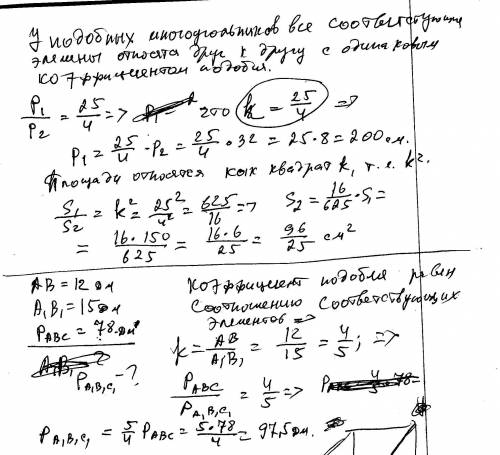 У подобных многоугольников все соответствующие
элементы относятся друг к другу с одинаковым
коэффициентом подобия.
P₁/P₂ = 25/4 => это k = 25/4 =>
P₁ = 25/4 · P₂ = 25/4 · 32 = 25·8 = 200 см.
Площади относятся как квадрат k, т.е. k².
S₁/S₂ = k² = 25²/4² = 625/16 => S₂ = 16/625 · S₁ =
= 16·150/625 = 16·6/25 = 96/25 см²
AB = 12 дм
A₁B₁ = 15 дм
P_ABC = 78 дм
P_A₁B₁C₁ - ?
Коэффициент подобия равен
соотношению соответствующих
элементов =>
k = AB/A₁B₁ = 12/15 = 4/5; =>
P_ABC/P_A₁B₁C₁ = 4/5 =>
P_A₁B₁C₁ = 5/4 P_ABC = 5·78/4 = 97,5 дм.